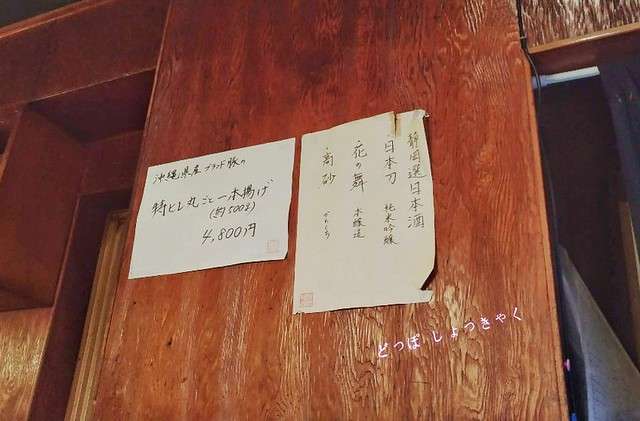 沖縄県産ブランド豚の
特ヒレ丸ごと一本揚げ
(約500g)
4,800円
静岡選日本酒
日本刀 純米吟醸
花の舞 本醸造
高砂 からくち
どっぽ しょっきゃく